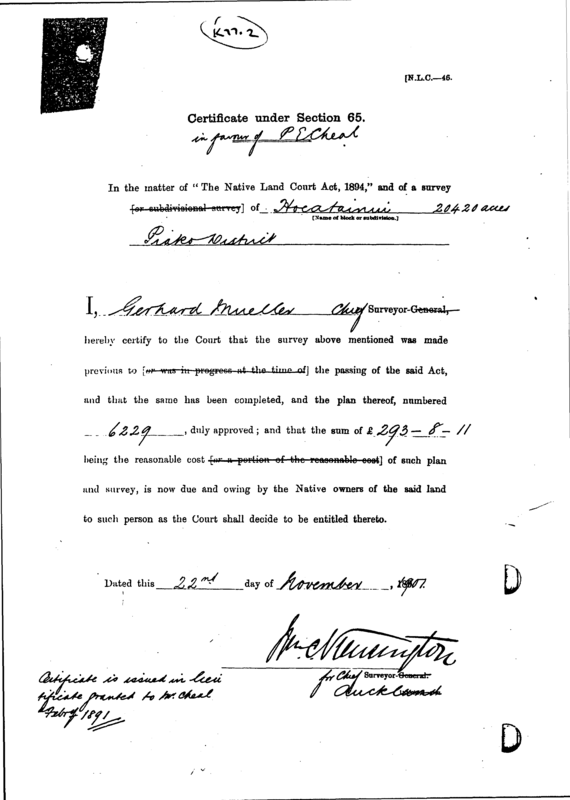 K77.2
[N.L.C.—46.
Certificate under Section 65.
in favour of P E Cheal
In the matter of "The Native Land Court Act, 1894," and of a survey
[or subdivisional survey] of Hoeatainui 20420 acres
[Name of block or subdivision.]
Piako District
I, Gerhard Mueller Chief Surveyor-General,
hereby certify to the Court that the survey above mentioned was made
previous to [or was in progress at the time of] the passing of the said Act,
and that the same has been completed, and the plan thereof, numbered
6229, duly approved; and that the sum of £ 293-8-11
being the reasonable cost [or a portion of the reasonable cost] of such plan
and survey, is now due and owing by the Native owners of the said land
to such person as the Court shall decide to be entitled thereto.
Dated this 22nd day of November, 1901.
for Chief Surveyor-General.
Auckland
Certificate is issued in lieu
tificate granted to Mr. Cheal
Febry 1891
D
D